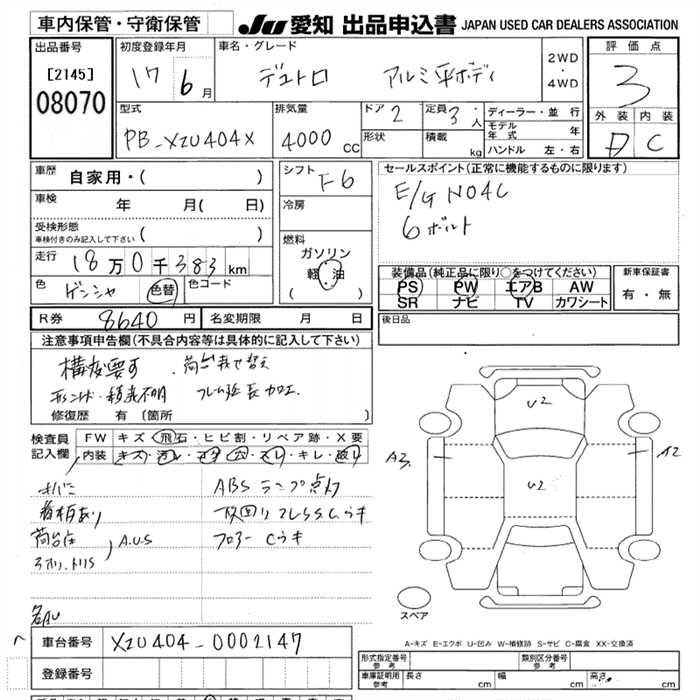 車内保管・守衛保管
JU 愛知 出品申込書 JAPAN USED CAR DEALERS ASSOCIATION
出品番号
[2145]
08070
初度登録年月
17 6月
車名・グレード
デュトロ アルミ平ボディ
2WD
・
4WD
評価点
3
外装 内装
D C
型式
PB-XZU404X
排気量
4000 cc
ドア 2
形状
定員 3・人
積載 kg
ディーラー・並行
モデル年式 年
ハンドル 左・右
車歴 自家用・( )
車検 年 月( 日)
受検形態
車検付きのみ記入して下さい ( )
走行 18万0千383km
色 ゲンシャ 色替 色コード
シフト F6
冷房
燃料
ガソリン
軽・油
( ・ )
セールスポイント(正常に機能するものに限ります)
E/G N04C
6ボルト
装備品(純正品に限り○をつけてください)
PS PW エアB AW
SR ナビ TV カワシート
新車保証書
有・無
R券 8640円 名変期限 月 日
後日品
注意事項申告欄(不具合内容等は具体的に記入して下さい)
構変要す ・荷台載せ替え
積載不明 フレーム延長加工
修復歴 有 (箇所 )
検査員
記入欄
FW キズ・飛石・ヒビ割・リペア跡・X要
内装 キズ・汚レ・コゲ・穴・スレ・キレ・破り
ABSランプ点灯
看板あり 下回りフレSSCウキ
荷台左 A.U.S フロアーCウキ
U2
A3 A2
U2
スペア
A-キズ E-エクボ U-凹み W-補修跡 S-サビ C-腐食 XX-交換済
車台番号 XZU404-0002147
登録番号
形式指定番号 参考
類別区分番号 参考
車庫証明用 参考 長さ cm 幅 cm 高さ cm